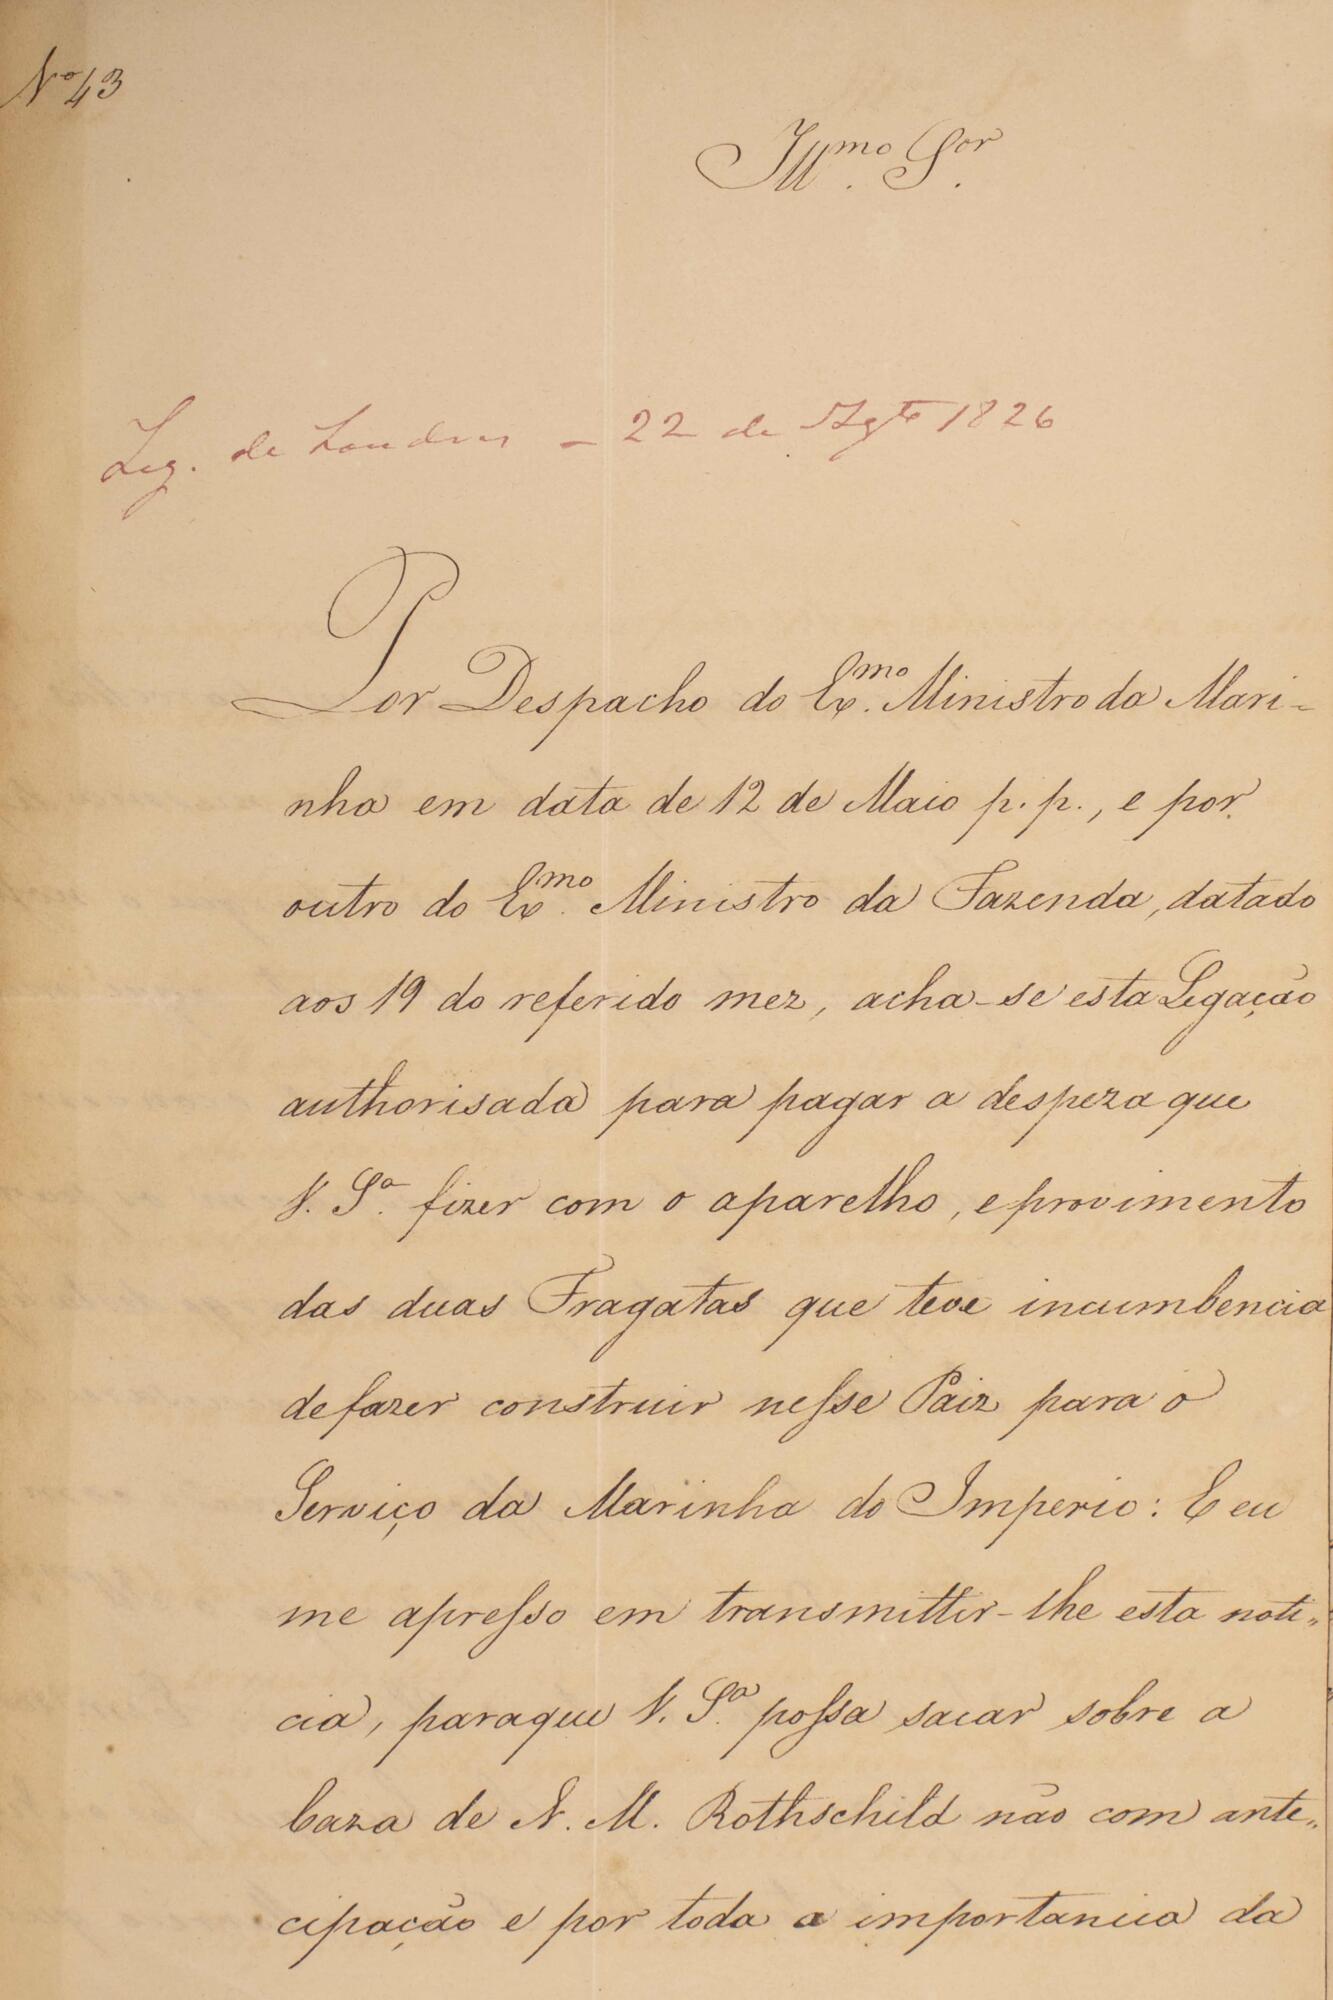 Nº 43
Illmo. Sor.
Leg. de Londres – 22 de Agto 1826
Por Despacho do Exmo. Ministro da Mari-
nha em data de 12 de Maio p. p., e por
outro do Exmo. Ministro da Fazenda, datado
aos 19 do referido mez, acha-se esta Legação
authorisada para pagar a despeza que
V. Sª. fizer com o aparelho, e provimento
das duas Fragatas que teve incumbencia
de fazer construir nesse Paiz para o
Serviço da Marinha do Imperio: E eu
me apresso em transmittir-lhe esta noti-
cia, paraque V. Sª. possa sacar sobre a
caza de N. M. Rothschild não com ante-
cipação e por toda a importancia da